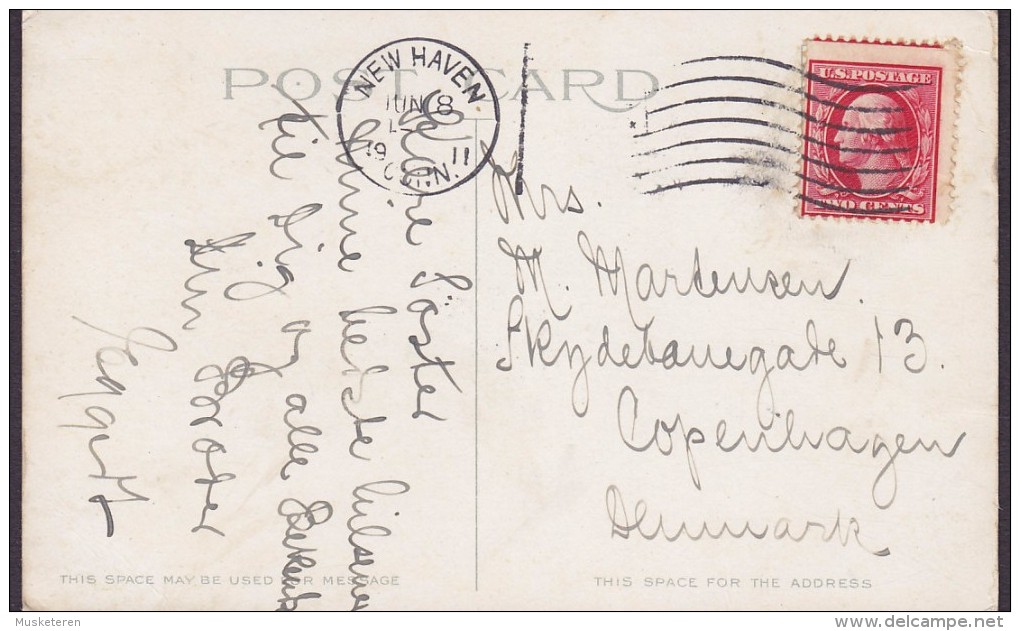 POST CARD
NEW HAVEN
JUN 8
19 11
CONN.
U.S. POSTAGE
TWO CENTS
Kjære Söster
Mine bedste hilsener
til Dig og alle Bekendte
Din Broder
Mrs.
M. Martensen.
Skydebanegade 13.
Copenhagen
Denmark
THIS SPACE MAY BE USED FOR MESSAGE
THIS SPACE FOR THE ADDRESS
Musketeren
delcampe.net